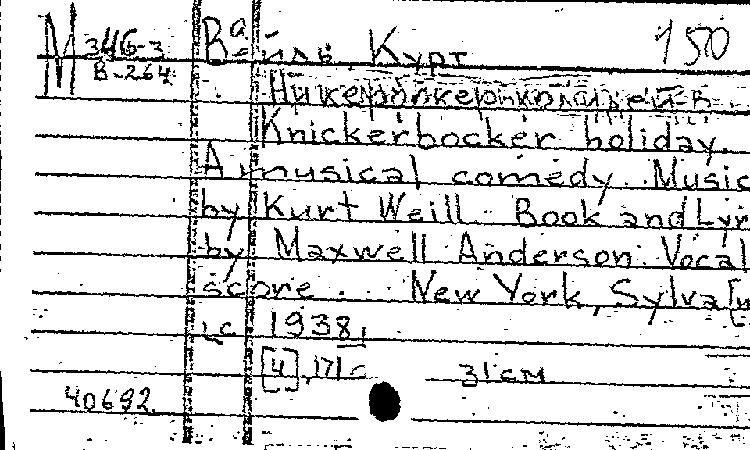 М 346-3
В-264
Вайль, Курт 150
Knickerbocker holiday.
A musical comedy. Music
by Kurt Weill. Book and Lyr
by Maxwell Anderson. Vocal
score. New York, Sylva
1938.
[4], 171 с 31 см
40692